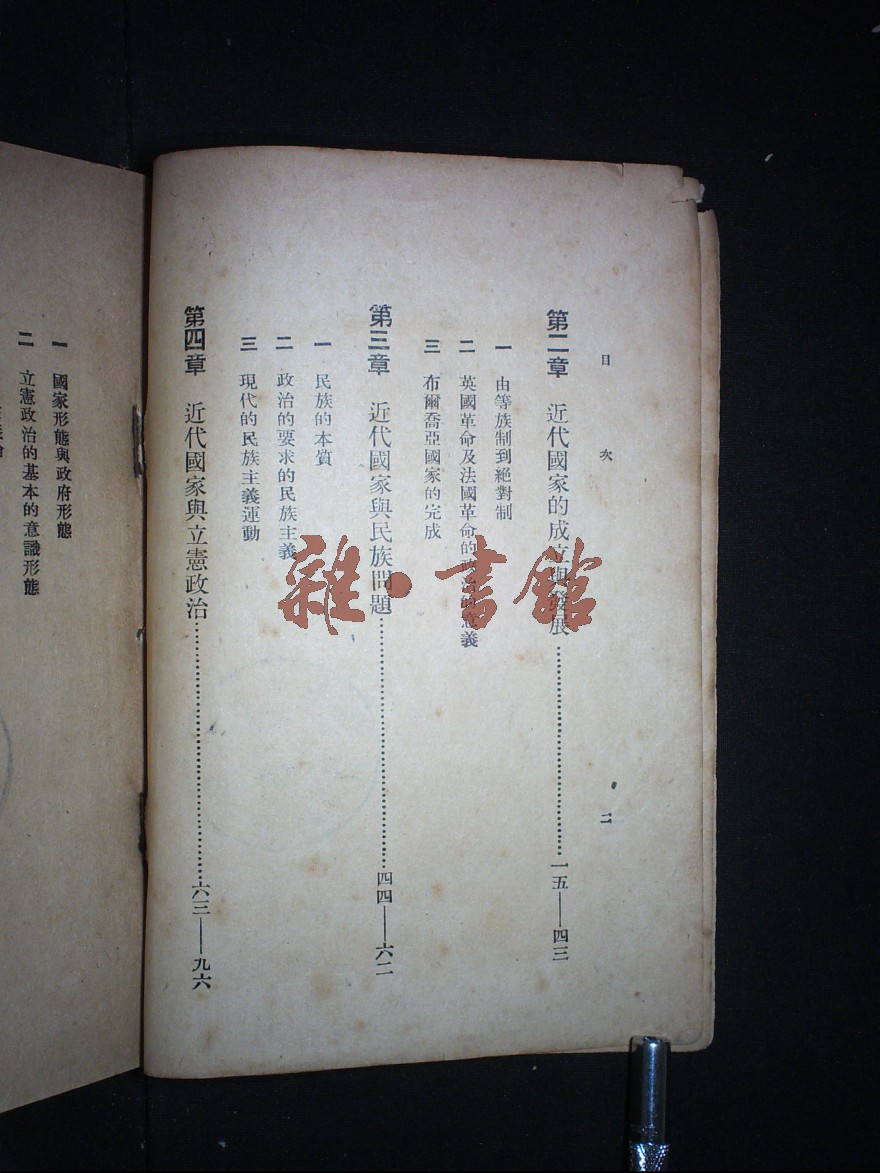 目次 二
第二章 近代國家的成立與發展……一五——四三
一 由等族制到絕對制
二 英國革命及法國革命的政治的意義
三 布爾喬亞國家的完成
第三章 近代國家與民族問題……四四——六二
一 民族的本質
二 政治的要求的民族主義
三 現代的民族主義運動
第四章 近代國家與立憲政治……六三——九六
一 國家形態與政府形態
二 立憲政治的基本的意識形態
雜·書館